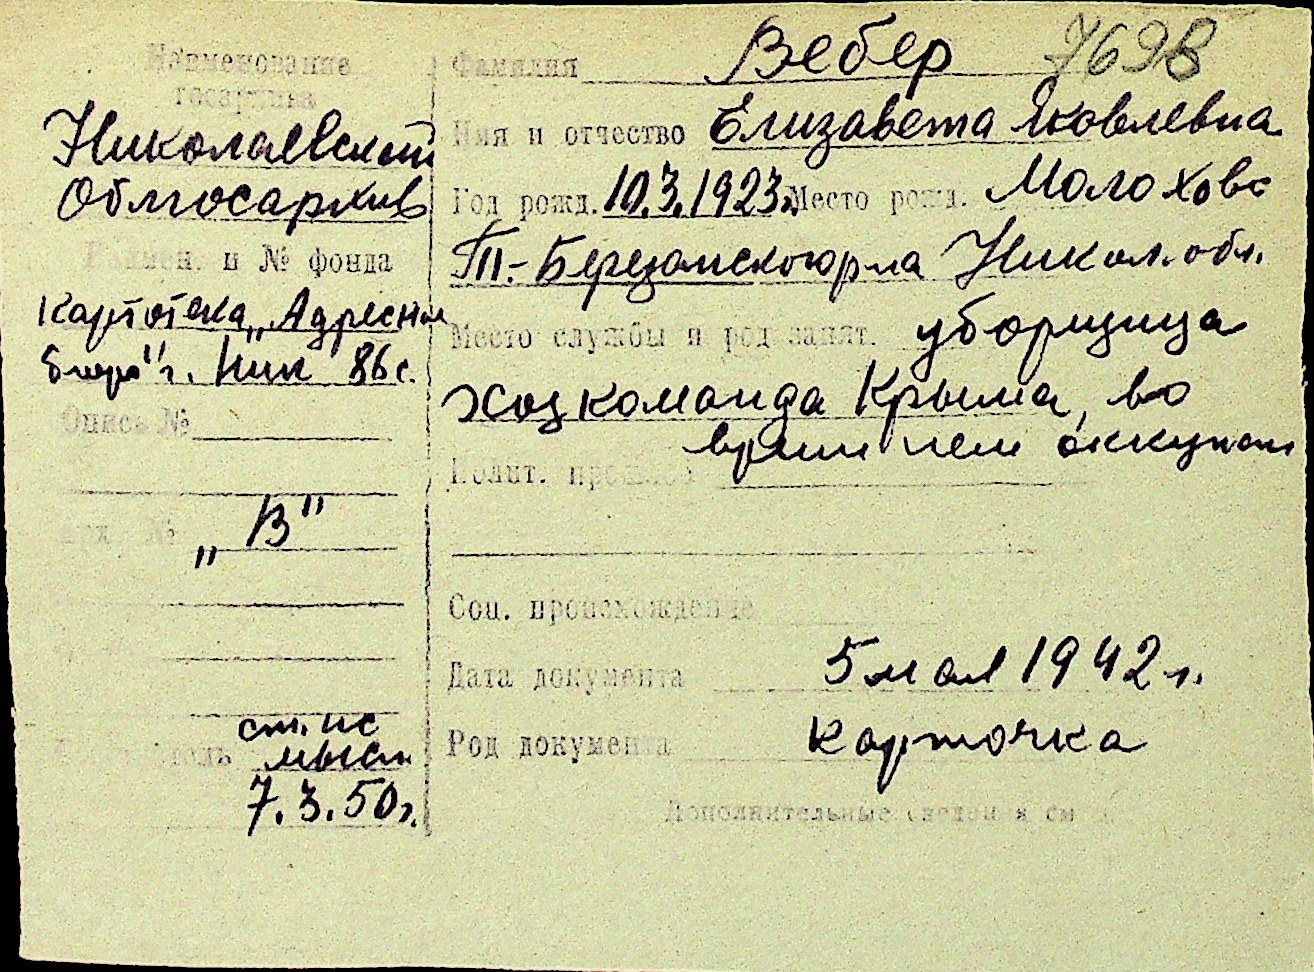 Наименование
госархива
Николаевский
Облгосархив
Наимен. и № фонда
Картотека „Адресное
бюро" г. Ник 86 с.
Опись №
„В"
ст. ис
мысл
7.3.50г.
Фамилия Вебер 769В
Имя и отчество Елизавета Яковлевна
Год рожд. 10.3.1923г. Место рожд. Молохово
Т.-Березанского р-на Никол. обл.
Место службы и род занят. уборщица
хозкоманда Крыма, во
время нем оккупац
Полит. прошлое
Соц. происхождение
Дата документа 5 мая 1942 г.
Род документа карточка
Дополнительные сведения см